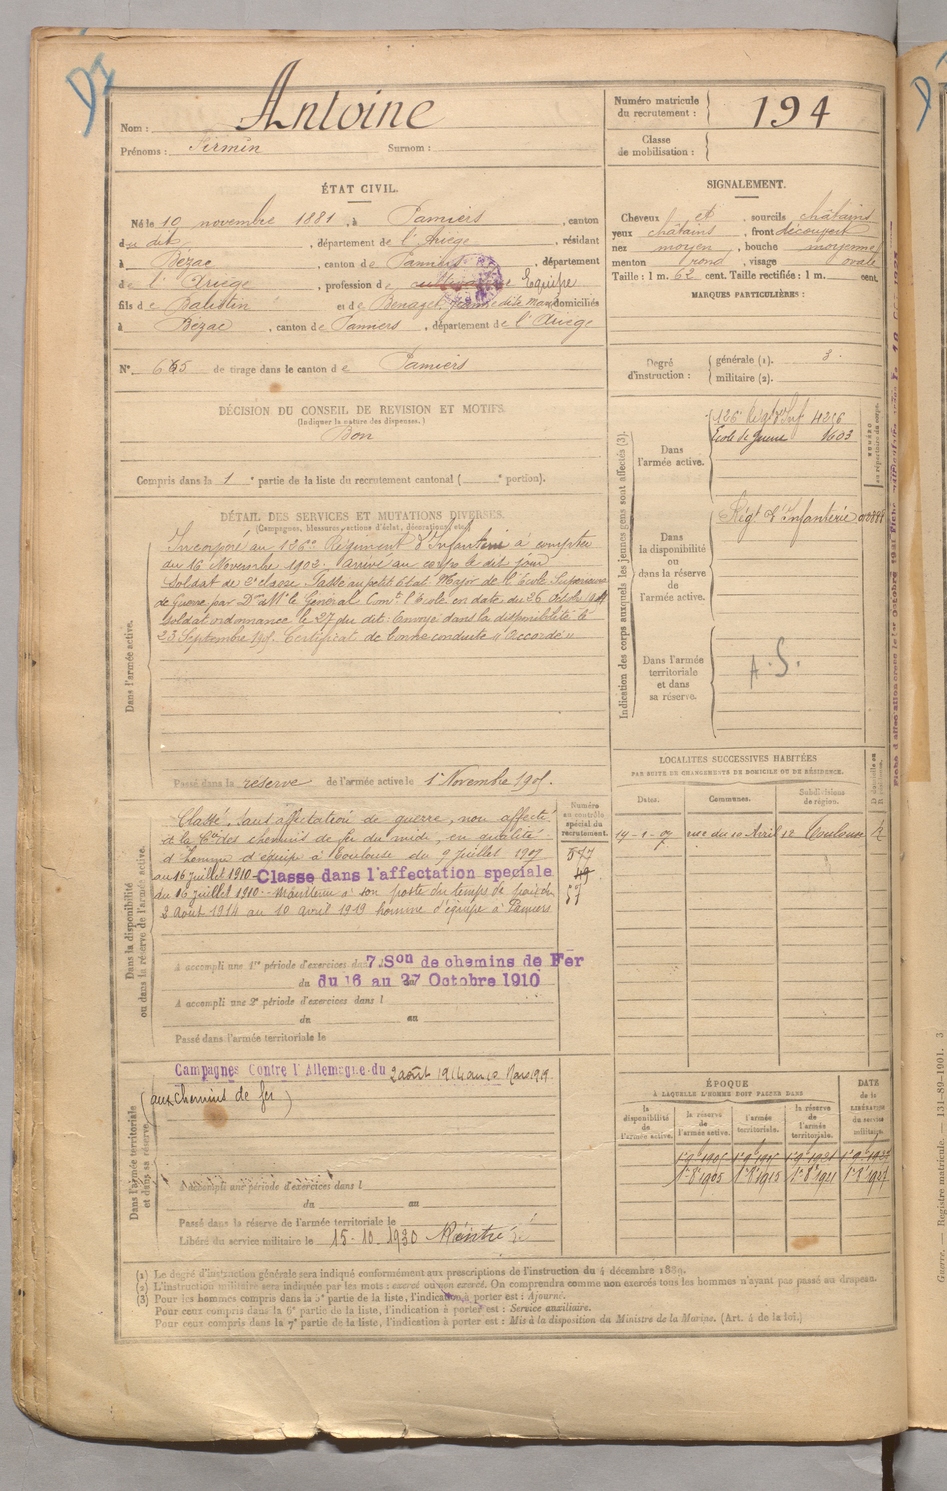 Nom : Antoine
Prénoms : Firmin Surnom :
Numéro matricule du recrutement : 194
Classe de mobilisation :
ÉTAT CIVIL.
Né le 10 novembre 1881, à Pamiers, canton
du dit, département de l'Ariège, résidant
à Bezac, canton de Pamiers, département
de l'Ariège, profession de Equipe
fils de et de Benazet, Jeanne dite domiciliés
à Bézac, canton de Pamiers, département de l'Ariège
N° de tirage dans le canton de Pamiers
DÉCISION DU CONSEIL DE REVISION ET MOTIFS.
(Indiquer la nature des dispenses.)
Bon
Compris dans la 1e partie de la liste du recrutement cantonal ( e portion).
SIGNALEMENT.
Cheveux et, sourcils châtains
yeux châtains, front découvert
nez moyen, bouche moyenne
menton rond, visage ovale
Taille : 1 m. 62 cent. Taille rectifiée : 1 m. cent.
MARQUES PARTICULIÈRES :
Degré d'instruction :
générale (1). 3.
militaire (2).
DÉTAIL DES SERVICES ET MUTATIONS DIVERSES.
(Campagnes, blessures, actions d'éclat, décorations, etc.)
Dans l'armée active.
Incorporé au 126e Régiment d'Infanterie à compter
du 16 Novembre 1902. Arrivé au corps le dit jour
Soldat de 2e classe. Passé au petit Etat Major de l'Ecole Supérieure
de Guerre par Mr le Général Comt l'Ecole en date du 26
Soldat ordonnance le 27 du dit. Envoyé dans la disponibilité le
23 Septembre 1905. Certificat de bonne conduite "Accordé"
Passé dans la réserve de l'armée active le 1er Novembre 1905.
Indication des corps auxquels les jeunes gens sont affectés (3).
Dans l'armée active.
126e Régt d'Inf 4216
Ecole de guerre 1603
Dans la disponibilité ou dans la réserve de l'armée active.
Régt d'Infanterie
Dans l'armée territoriale et dans sa réserve.
A. S.
Dans la disponibilité ou dans la réserve de l'armée active.
Classé, sauf affectation de guerre, non affecté
à la Cie des chemins de fer du midi, en qualité
d'homme d'équipe à Toulouse du 9 Juillet 1907
au 16 juillet 1910 - Classé dans l'affectation spéciale
du 16 juillet 1910. Maintenu à son poste du temps de paix du
2 août 1914 au 10 avril 1919 homme d'équipe à Pamiers
Numéro au contrôle spécial du recrutement.
577
49
57
A accompli une 1re période d'exercices dans 7e Son de chemins de Fer
du 16 au 27 Octobre 1910
A accompli une 2e période d'exercices dans l
du au
Passé dans l'armée territoriale le
LOCALITÉS SUCCESSIVES HABITÉES
PAR SUITE DE CHANGEMENTS DE DOMICILE OU DE RÉSIDENCE.
Dates. Communes. Subdivisions de région.
14-1-07 rue du 10 Avril 12 Toulouse
Dans l'armée territoriale et dans sa réserve.
Campagnes Contre l'Allemagne du 2 août 1914 au 10 Mars 1919
(aux chemins de fer)
A accompli une période d'exercices dans l
du au
Passé dans la réserve de l'armée territoriale le
Libéré du service militaire le 15-10-1930
ÉPOQUE
À LAQUELLE L'HOMME DOIT PASSER DANS
la disponibilité de l'armée active. la réserve de l'armée active. l'armée territoriale. la réserve de l'armée territoriale. DATE de la LIBÉRATION du service militaire.
(1) Le degré d'instruction générale sera indiqué conformément aux prescriptions de l'instruction du 4 décembre 1889.
(2) L'instruction militaire sera indiquée par les mots : exercé ou non exercé. On comprendra comme non exercés tous les hommes n'ayant pas passé au drapeau.
(3) Pour les hommes compris dans la 5e partie de la liste, l'indication à porter est : Ajourné.
Pour ceux compris dans la 6e partie de la liste, l'indication à porter est : Service auxiliaire.
Pour ceux compris dans la 7e partie de la liste, l'indication à porter est : Mis à la disposition du Ministre de la Marine. (Art. 4 de la loi.)
Guerre. — Registre matricule. — 131-89-1901. 3